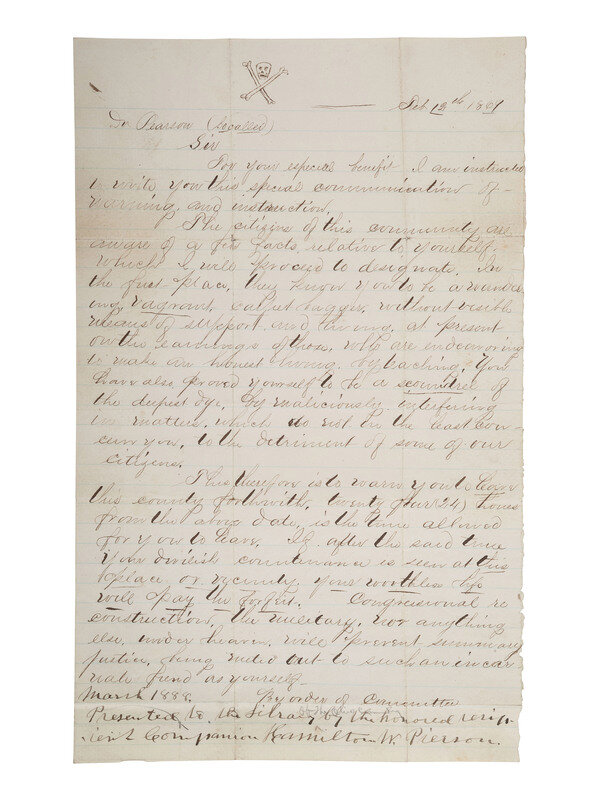 Feb 12th 1867
Dr Pearson (So called)
Sir
For your especial benefit I am instructed
to write you this special communication of
warning, and instruction.
The citizens of this community are
aware of a few facts relative to yourself,
which I will proceed to designate. In
the first place, they know you to be a wander-
ing vagrant, carpet bagger, without visible
means of support and living, at present
on the earnings of those, who are endeavoring
to make an honest living, by teaching. You
have also proved yourself to be a scoundrel of
the deepest dye, by maliciously interfering
in matters, which do not in the least con-
cern you, to the detriment of some of our
citizens.
This therefore is to warn you to leave
this county forthwith, twenty four (24) hours
from the above date, is the time allowed
for you to leave. If after the said time
your devilish countenance is seen at this
place or vicinity your worthless life
will pay the forfeit. Congressional re
construction, the military, nor anything
else under heaven, will prevent summary
justice, being meted out to such an incar
nate fiend as yourself.
March 1888. By order of Committee
Presented to the Library by the honored recip-
ient Companion Hamilton W. Pierson.